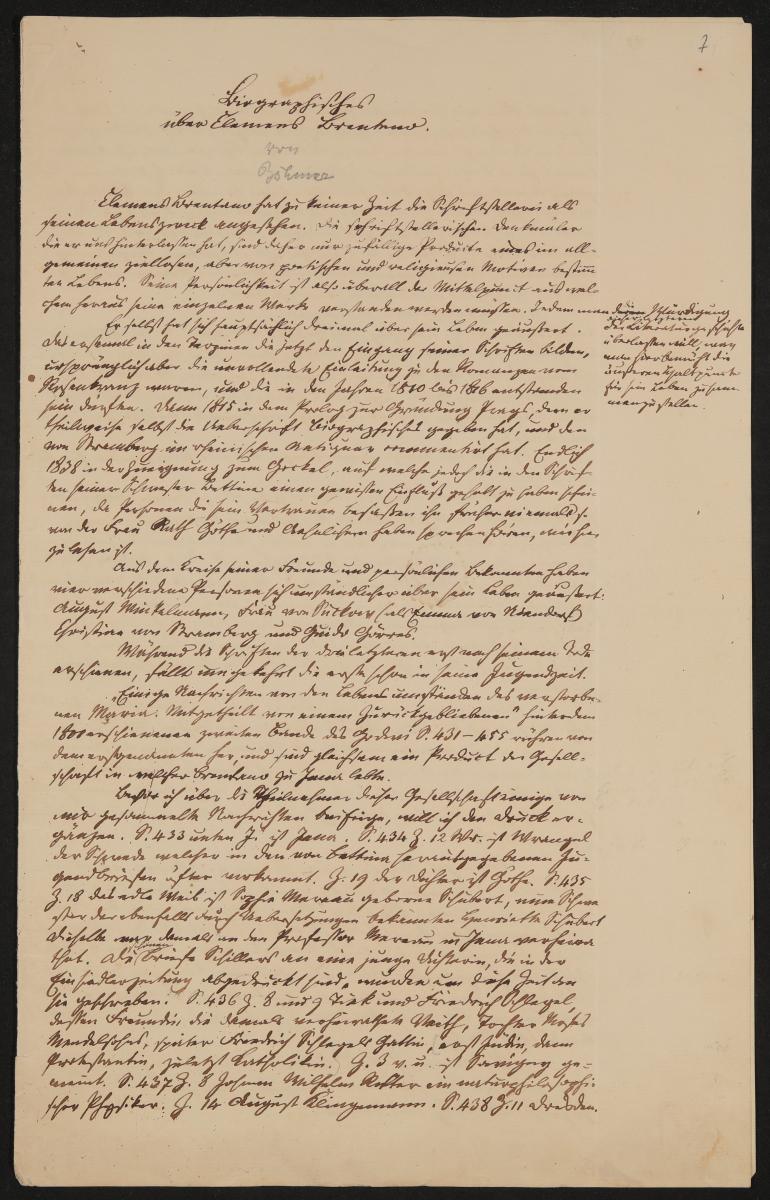 7
Biographisches
über Clemens Brentano.
von
Böhmer
Clemens Brentano hat zu keiner Zeit die Schriftstellerei als
seinen Lebenszweck angesehen. Die schriftstellerischen Denkmäler
die er uns hinterlassen hat, sind daher nur zufällige Producte eines im all-
gemeinen ziellosen, aber von poetischen und religieusen Motiven bestimm
ten Lebens. Seine Persönlichkeit ist also überall der Mittelpunct aus wel-
chem heraus seine einzelnen Werke verstanden werden müssen. Indem man deren Würdigung
der Literaturgeschichte
überlassen will, mag
man
für sein Leben zusam-
menzustellen.
Er selbst hat sich hauptsächlich dreimal über sein Leben geäussert.
Das erstemal in den Terzinen die jetzt den Eingang seiner Schriften bilden,
ursprünglich aber die unvollendete Einleitung zu den Romanzen vom
Rosenkranz waren, und die in den Jahren 1810 bis 1816 entstanden
sein dürften. Dann 1815 in dem Prolog zur Gründung Prags, dem er
theilweise selbst die Ueberschrift biographisches gegeben hat, und den
von Stramberg im rheinischen Antiquar commentirt hat. Endlich
1838 in der Zueignung zum Gockel, auf welche jedoch die in den Schrif-
ten seiner Schwester Bettine einen gewissen Einfluß gehabt zu haben schei-
nen, da Personen die sein Vertrauen besaßen ihn früher niemals so
von der Frau Rath Göthe und Aehnlichem haben sprechen hören, wie hier
zu lesen ist.
Aus dem Kreise seiner Freunde und persönlichen Bekannten haben
vier verschiedene Personen sich umständlicher über sein Leben geäussert:
August Winkelmann, Frau von Suckow (als Emma von Niendorf)
Christian von Stramberg und Guido Görres.
Während die Schriften der drei letzteren erst nach seinem Tode
erschienen, fällt umgekehrt die erste schon in seine Jugendzeit.
„Einige Nachrichten von den Lebensumständen des verstorbe-
nen Maria. Mitgetheilt von einem Zurückgebliebenen" hinter dem
1801 erschienenen zweiten Bande des Godwi S. 431–455 rühren von
dem erstgenannten her, und sind gleichsam ein Product der Gesell-
schaft in welcher Brentano zu Jena lebte.
Bevor ich über die Theilnehmer dieser Gesellschaft einige von
mir gesammelte Nachrichten beifüge, will ich den Druck er-
gänzen. S. 433 unten J. ist Jena. S. 434 Z. 12 Wr. ist Wrangel
der Schwede welcher in den von Bettina herausgegebenen Ju-
gendbriefen öfter vorkommt. Z. 19 der Dichter ist Göthe. S. 435
Z. 18 das edle Weib ist Sophie Mereau geborne Schubert, eine Schwe
ster der ebenfalls durch Uebersetzungen bekannten Henriette Schubert
Dieselbe war damals an den Professor Mereau in Jena verheira
thet. Die Briefe Schillers an eine junge Dichterin, die in der
Einsiedlerzeitung abgedruckt sind, wurden um diese Zeit an
sie geschrieben. S. 436 Z. 8 und 9 Tiek und Friedrich Schlegel,
dessen Freundin, die damals verheirathete Veith, Tochter Moses
Mendelsohns, später Friedrich Schlegels Gattin, erst Jüdin, dann
Protestantin, zuletzt Katholikin. Z. 3 v. u. ist Savigny ge-
meint. S. 437 Z. 8 Johann Wilhelm Ritter ein naturphilosophi-
scher Physiker. Z. 14 August Klingemann. S. 438 Z. 11 Dresden.